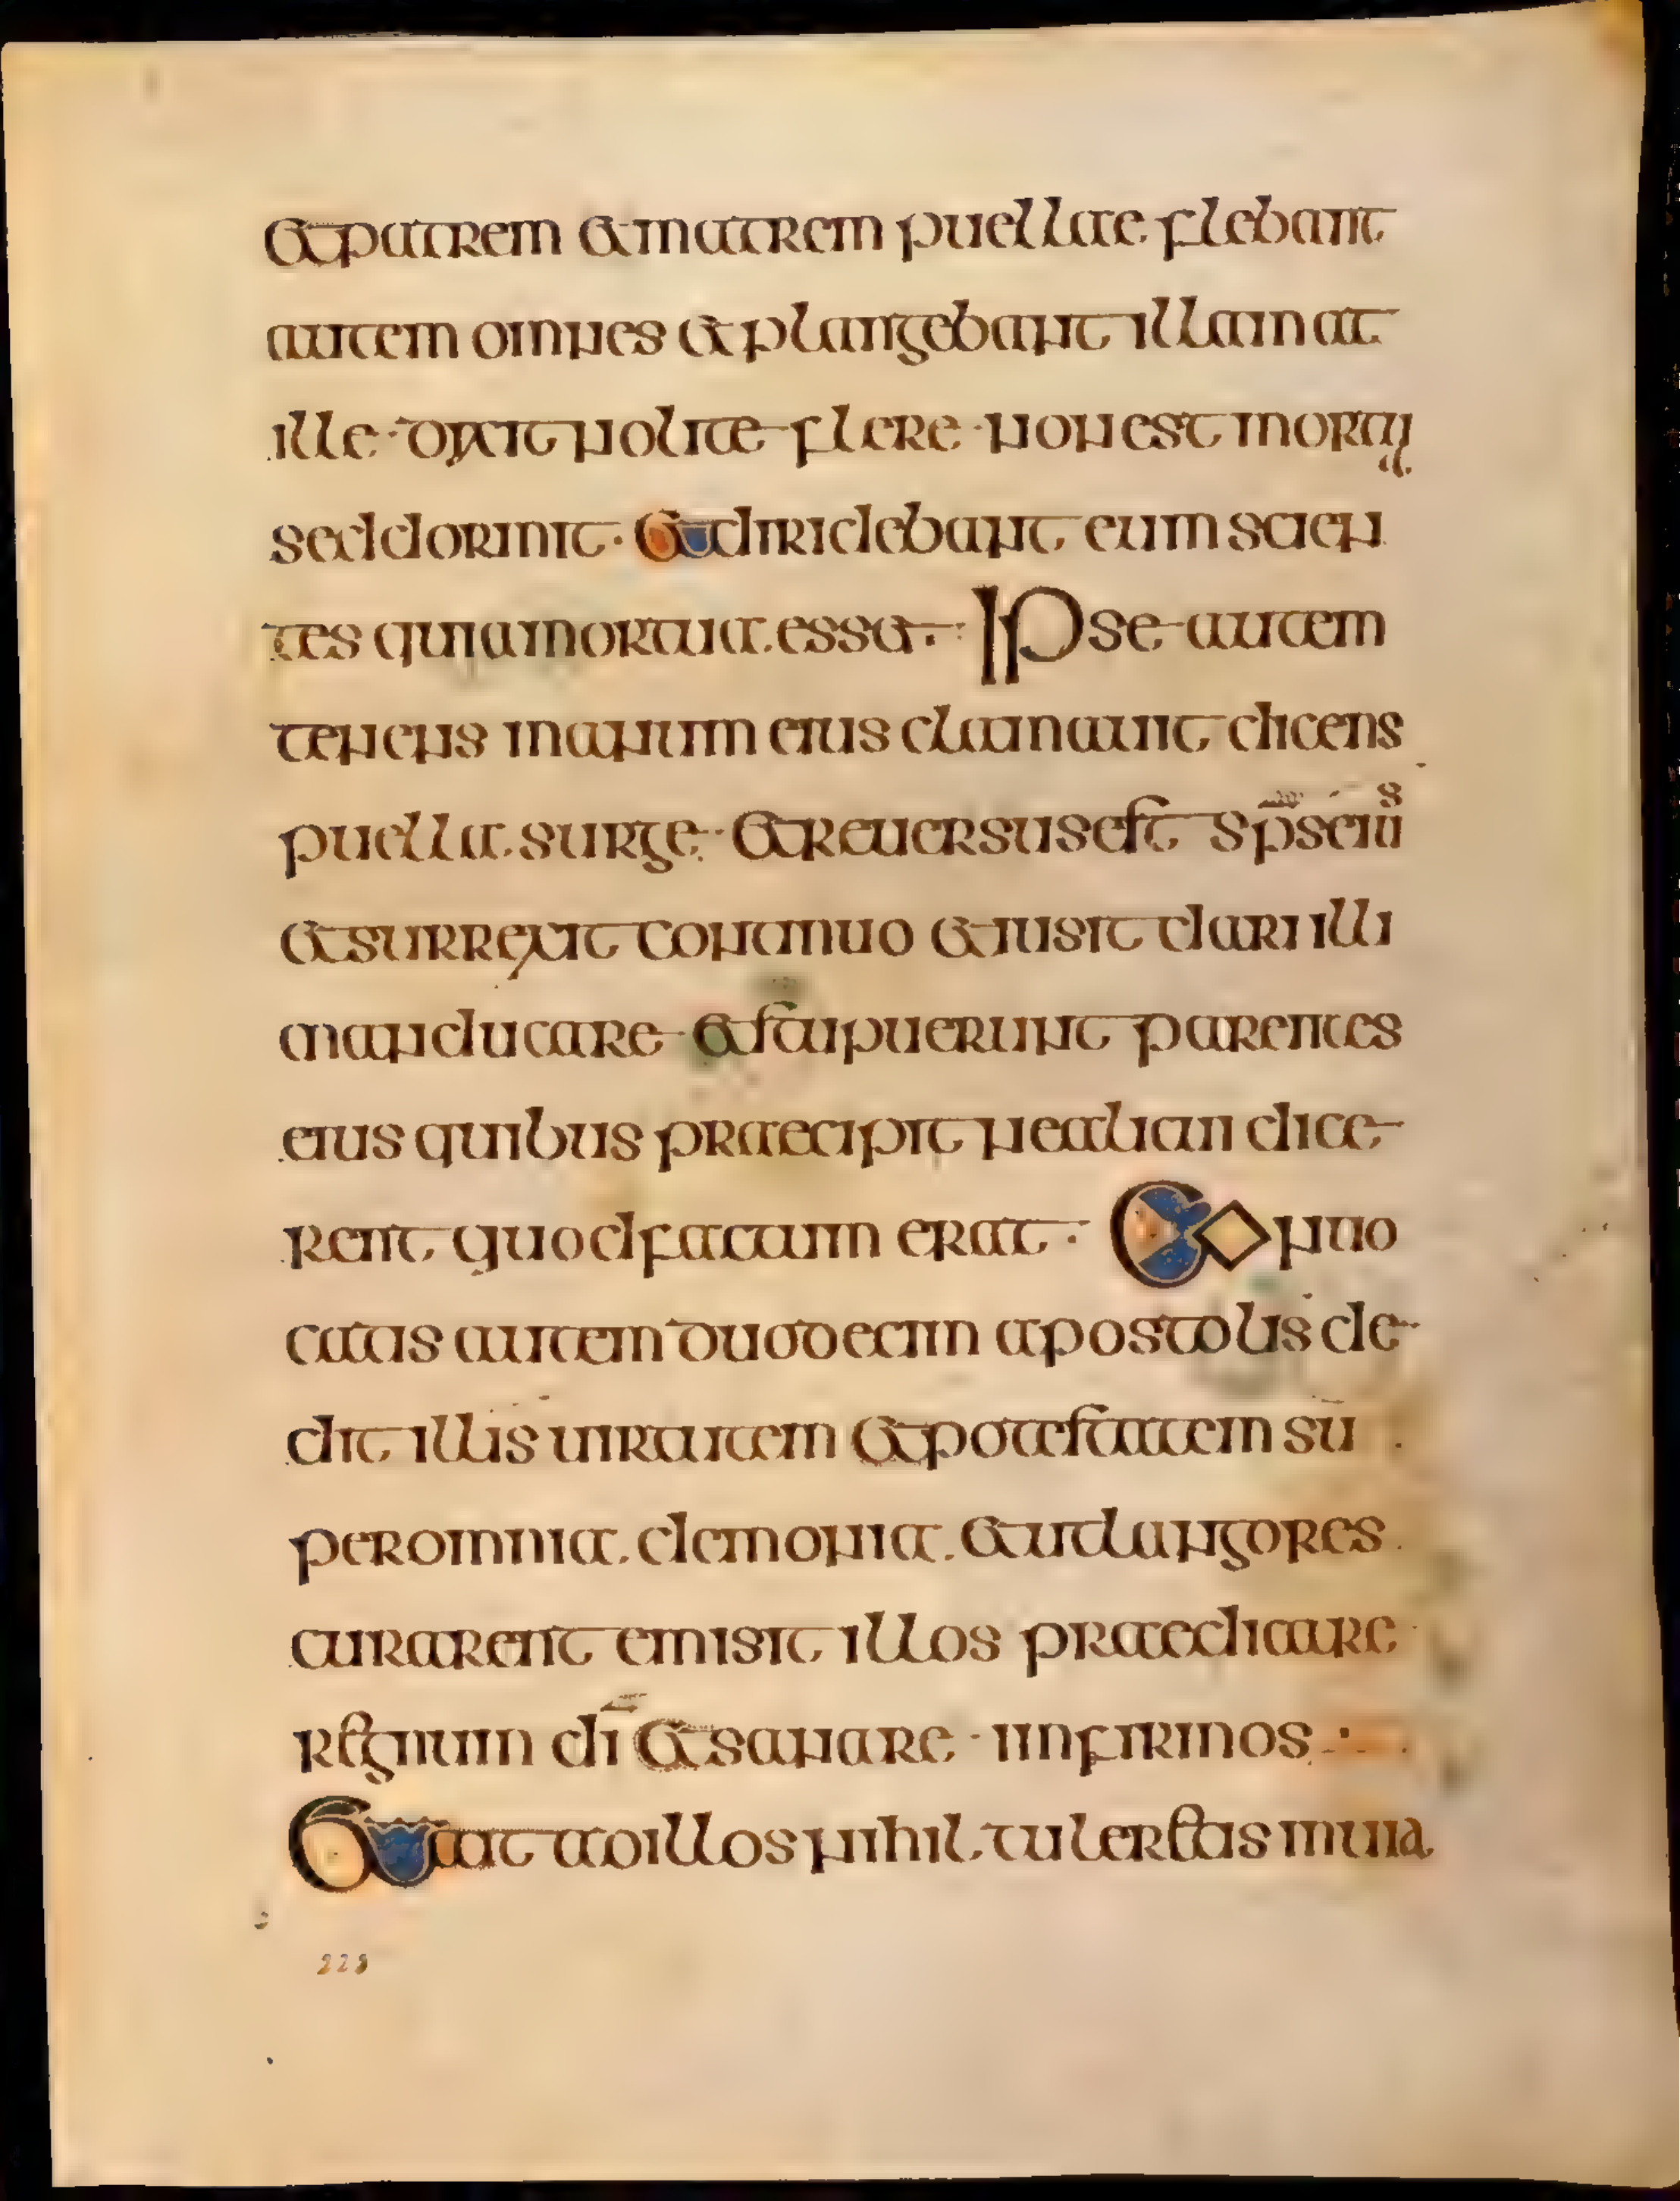 et patrem et matrem puellae flebant
autem omnes et plangebant illam at
ille dixit nolite flere non est mortu
a
sed dormit et diridebant eum scien
tes quia mortua esset Ipse autem
tenens manum eius clamauit dicens
puella surge et reuersus est sps eiu
s
et surrexit continuo et iusit dari illi
manducare et stupuerunt parentes
eius quibus praecipit ne alicui dice
rent quod factum erat Conuo
catis autem duodecim apostolis de
dit illis uirtutem et potestatem su
per omnia demonia et ut langores
curarent et misit illos praedicare
regnum di et sanare infirmos
Et ait ad illos nihil tuleretis in uia